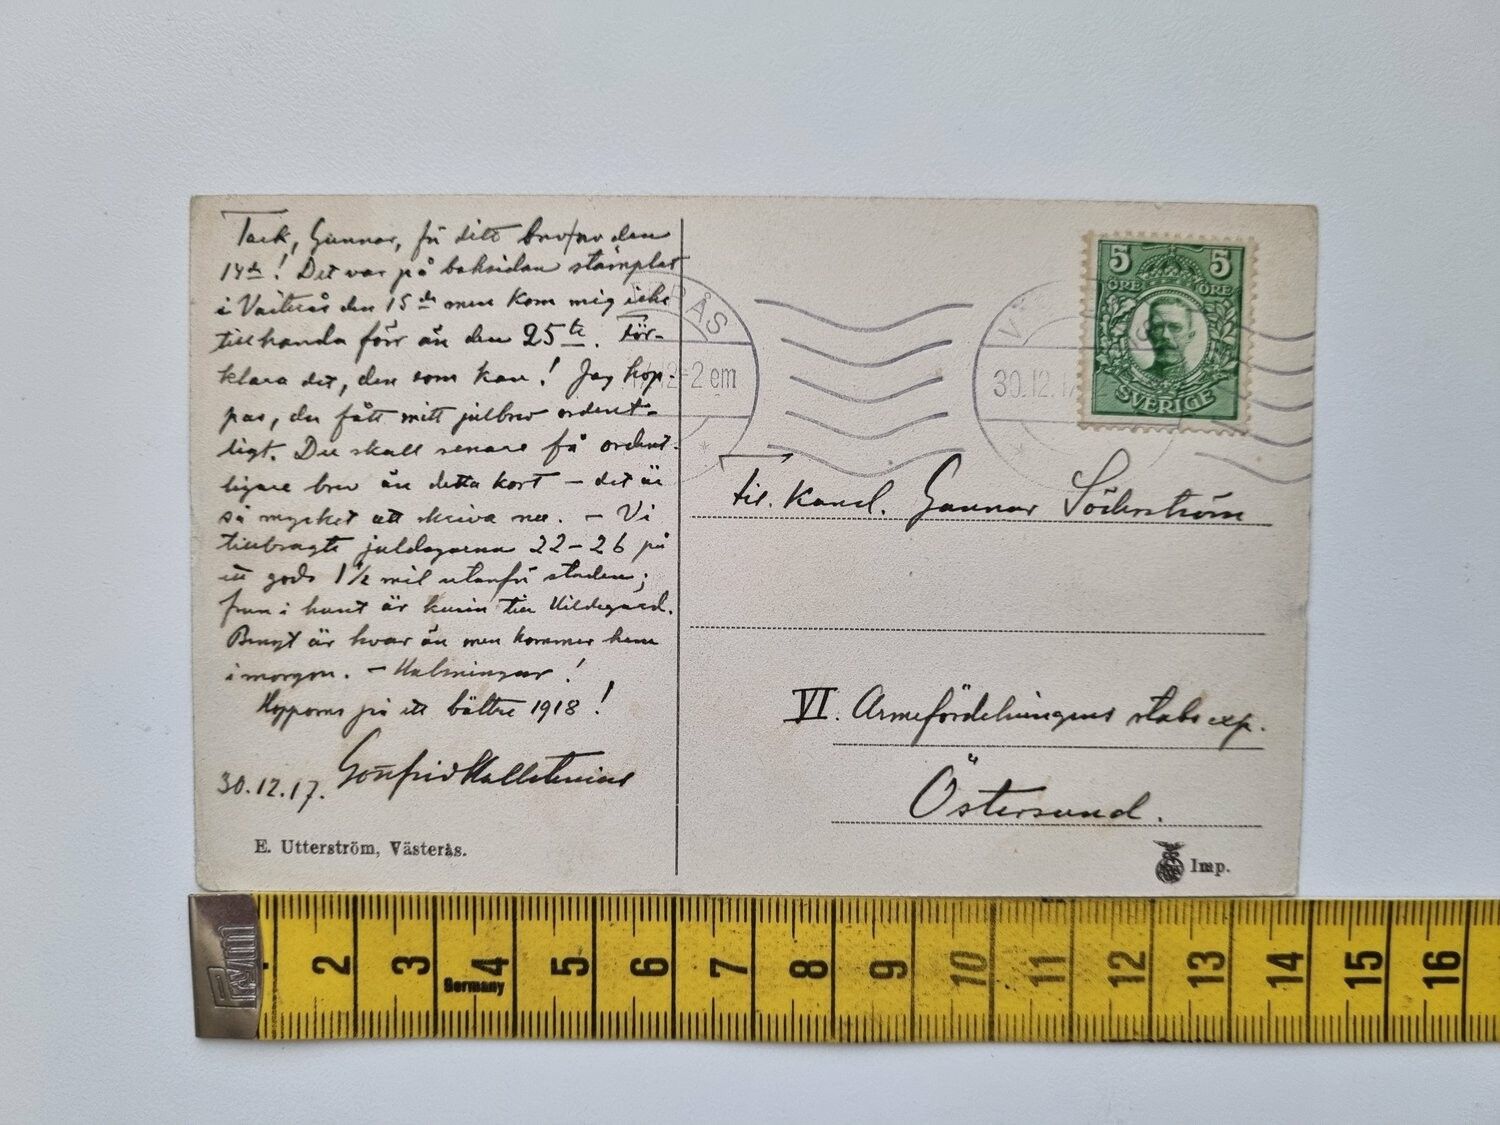 Tack, Gunnar, för ditt brev av den
14de! Det var på baksidan stämplat
i Västerås den 15de men kom mig icke
tillhanda förr än den 25te. För-
klara det, den som kan! Jag hop-
pas, du fått mitt julbrev ordent-
ligt. Du skall senare få ordent-
ligare brev än detta kort – det är
så mycket att skriva nu. – Vi
tillbragte juldagarna 22–26 på
ett gods 1 1/2 mil utanför staden;
frun i huset är kusin till Hildegard.
Bengt är kvar än men kommer hem
i morgon. – Hälsningar!
Hoppas på ett bättre 1918!
30.12.17. Gottfrid Kallstenius
E. Utterström, Västerås.
ERÅS
12-2 em
V
30.12.17
5 5
ÖRE ÖRE
SVERIGE
Fil. Kand. Gunnar Söderström
VI. Armefördelningens stabsexp.
Östersund.
Imp.
2 3 4 5 6 7 8 9 10 11 12 13 14 15 16
Germany